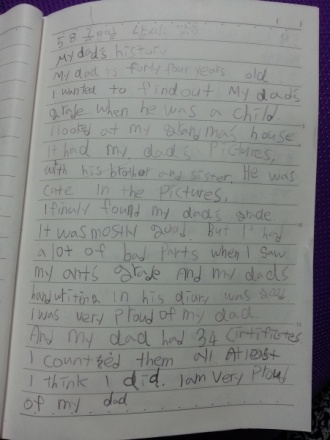 My dad's history
My dad is forty four years old
I wanted to find out My dad's
grade when he was a child
I looked at my grandmas house
It had my dad's Pictures,
with his brother and sister. He was
cute In the Pictures,
I finaly found my dads grade
It was mostly good. But I had
a lot of bad parts when I saw
my ants grade And my dads
handwriting in his diary was good
I was very Ploud of my dad
And my dad had 34 Cirtifictes
I counted them all At least
I think I did. I am very Ploud
of my dad